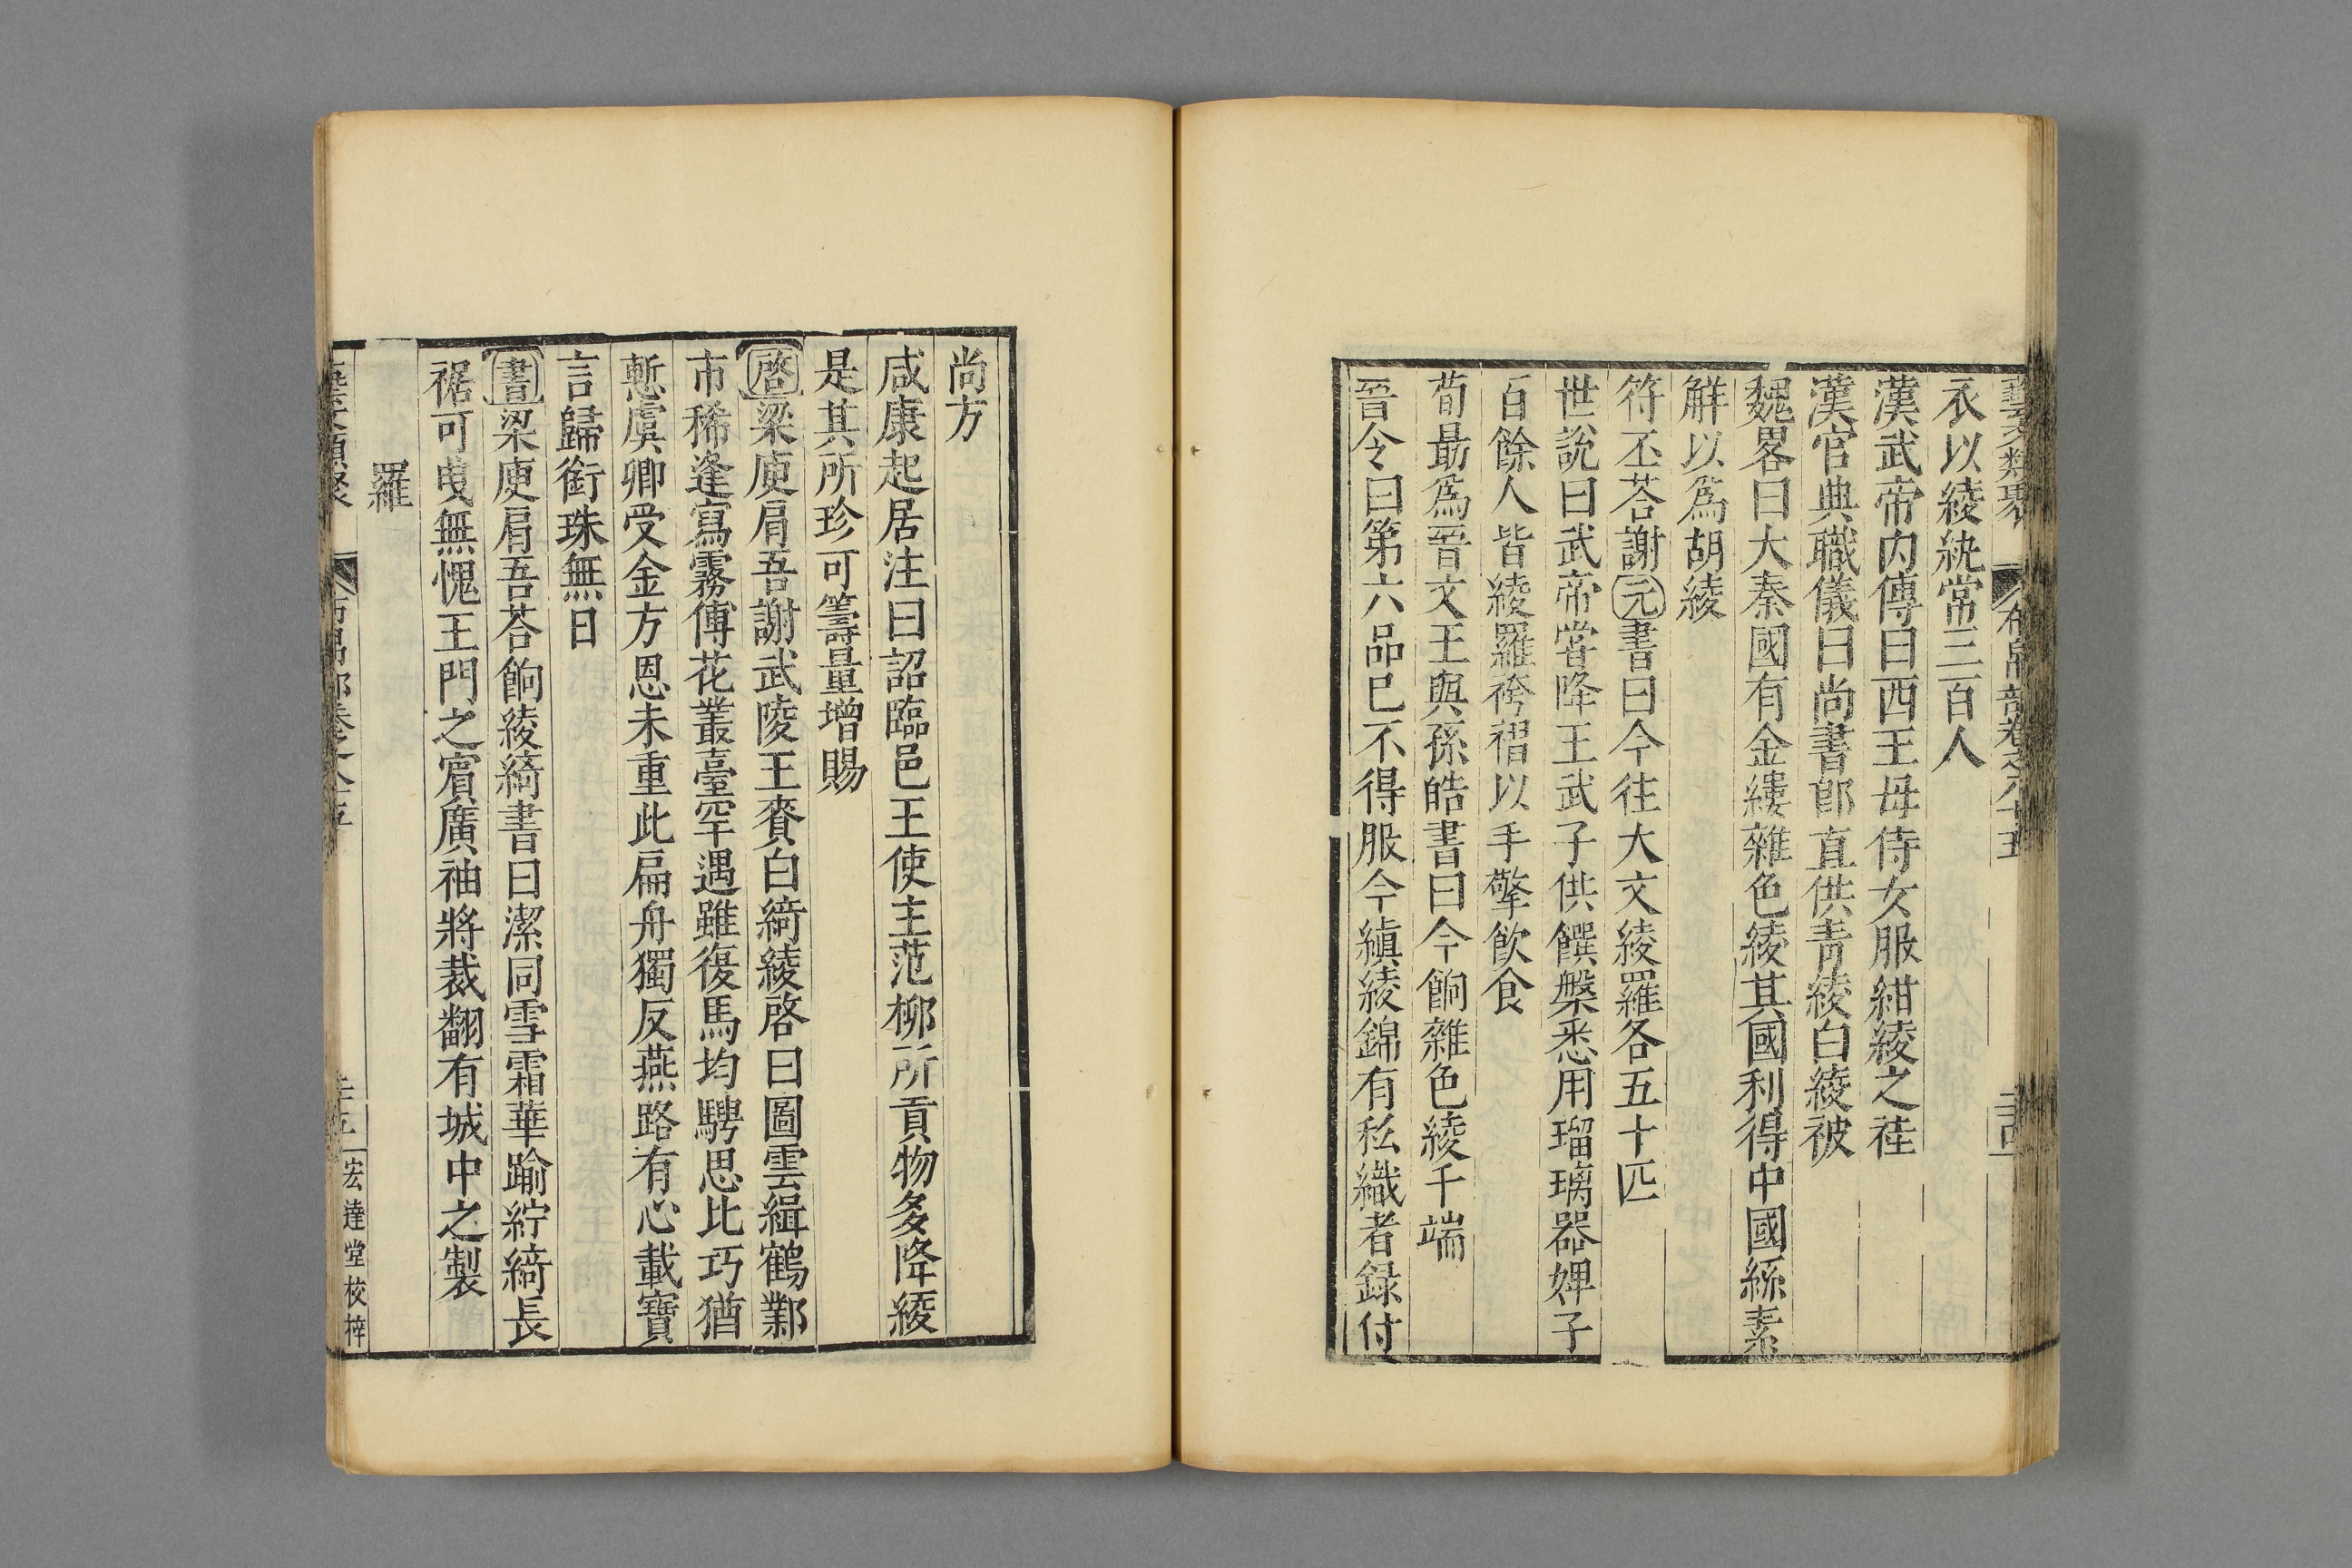 藝文類聚 布帛部卷之八十五
衣以綾紈常三百人
漢武帝内傳曰西王母侍女服紺綾之袿
漢官典職儀曰尚書郎直供青綾白綾被
魏畧曰大秦國有金縷雜色綾其國利得中國絲素
解以爲胡綾
符丕荅謝元書曰今往大文綾羅各五十匹
世説曰武帝甞降王武子供饌槃悉用瑠璃器婢子
百餘人皆綾羅袴褶以手擎飲食
荀勗爲晉文王與孫皓書曰今餉雜色綾千端
晉令曰第六品已不得服今縝綾錦有私織者録付
尚方
咸康起居注曰詔臨邑王使主范柳所貢物多降綾
是其所珍可籌量增賜
啓梁庾肩吾謝武陵王賚白綺綾啓曰圖雲緝鶴鄴
市稀逢寫霧傳花叢臺罕遇雖復馬均騁思比巧猶
慙虞卿受金方恩未重此扁舟獨反燕路有心載寶
言歸銜珠無日
書梁庾肩吾荅餉綾綺書曰潔同雪霜華踰紵綺長
裾可曳無愧王門之賓廣袖將裁翻有城中之製
羅
宏達堂校梓